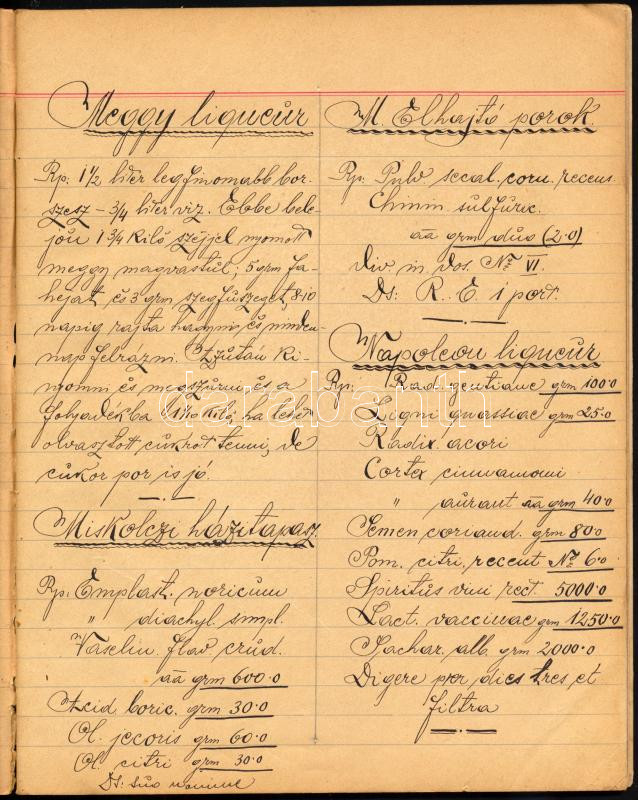 Meggy liqueur
Rp: 1 1/2 liter legfinomabb bor-
szesz – 3/4 liter viz. Ebbe bele
jön 1 3/4 kiló széjjel nyomott
meggy magvastúl; 5 grm fa-
hejat, és 3 grm szegfüszeget, 8-10
napig rajta hagyni és minden-
nap felrázni. Azután ki-
nyomni és megszürni és a
folyadékba kiló, ha lehet
olvasztott cukrot tenni, de
cukor por is jó.
Miskolczi házitapasz
Rp: Emplast. noricum
" diachyl. simpl.
Vaselin. flav crud.
āā grm 600·0
Acid. boric. grm 30·0
Ol. jecoris grm 60·0
Ol. citri grm 30·0
Ds: suo nomine
M. Elhajtó porok.
Rp: Pulv secal. corn. recens.
Chinin. sulfuric.
āā grm duo (2·0)
div. in dos. No VI.
Ds: R. E. 1 port.
Napoleon liqueur
Rp: Rad. gentiane grm 100·0
Ligni quassiae grm 25·0
Radix acori
Cortex cinnamomi
" aurant āā grm 40·0
Semen coriand. grm 80·0
Pom. citri, recent No 6·0
Spiritus vini rect. 5000·0
Lact. vaccinae grm 1250·0
Sachar. alb. grm 2000·0
Digere per dies tres et
filtra
darabanth